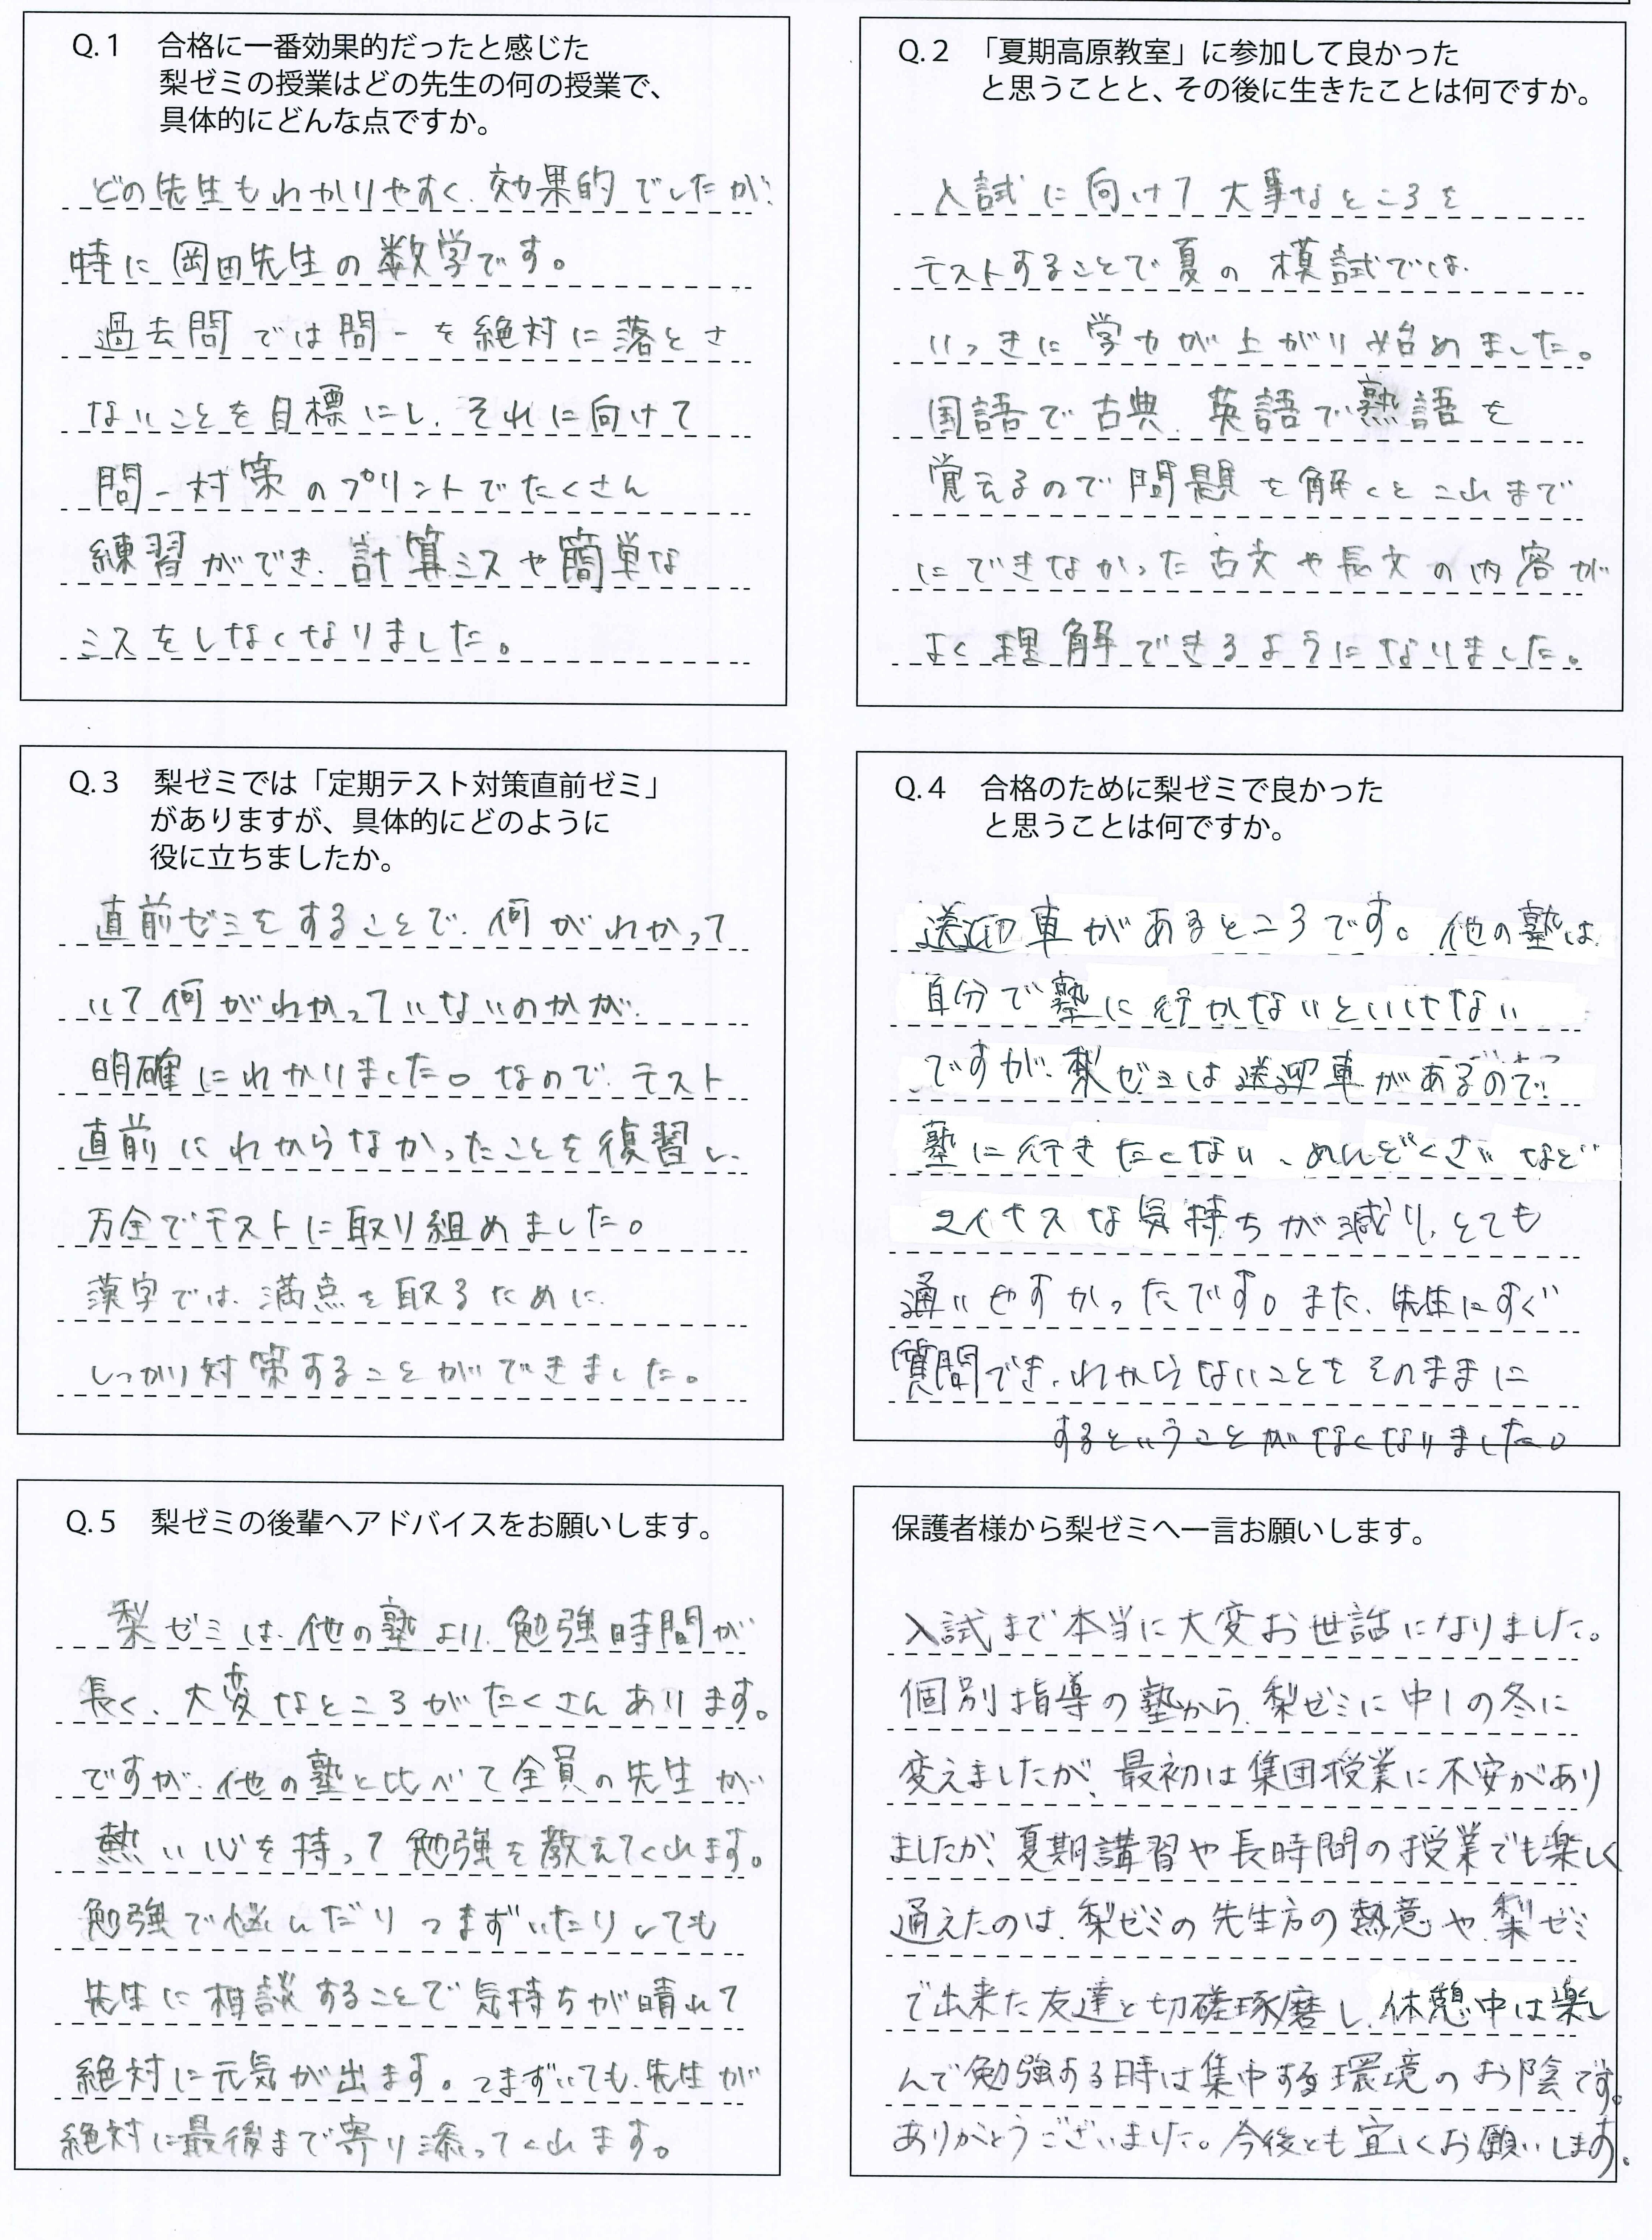 Q.1 合格に一番効果的だったと感じた
梨ゼミの授業はどの先生の何の授業で、
具体的にどんな点ですか。
どの先生もわかりやすく、効果的でしたが、
特に岡田先生の数学です。
過去問では問一を絶対に落とさ
ないことを目標にし、それに向けて
問一対策のプリントでたくさん
練習ができ、計算ミスや簡単な
ミスをしなくなりました。
Q.2 「夏期高原教室」に参加して良かった
と思うことと、その後に生きたことは何ですか。
入試に向けて大事なところを
テストすることで夏の模試では、
いっきに学力が上がり始めました。
国語で古典、英語で熟語を
覚えるので問題を解くとこれまで
にできなかった古文や長文の内容が
よく理解できるようになりました。
Q.3 梨ゼミでは「定期テスト対策直前ゼミ」
がありますが、具体的にどのように
役に立ちましたか。
直前ゼミをすることで、何がわかって
いて何がわかっていないのかが、
明確にわかりました。なので、テスト
直前にわからなかったことを復習し、
万全でテストに取り組めました。
漢字では、満点を取るために、
しっかり対策することができました。
Q.4 合格のために梨ゼミで良かった
と思うことは何ですか。
送迎車があるところです。他の塾は、
自分で塾に行かないといけない
ですが、梨ゼミは送迎車があるので、
塾に行きたくない、めんどくさいなど
マイナスな気持ちが減り、とても
通いやすかったです。また、先生にすぐ
質問でき、わからないことをそのままに
するということがなくなりました。
Q.5 梨ゼミの後輩へアドバイスをお願いします。
梨ゼミは、他の塾より、勉強時間が
長く、大変なところがたくさんあります。
ですが、他の塾と比べて全員の先生が
熱い心を持って勉強を教えてくれます。
勉強で悩んだりつまずいたりしても
先生に相談することで気持ちが晴れて
絶対に元気が出ます。つまずいても、先生が
絶対に最後まで寄り添ってくれます。
保護者様から梨ゼミへ一言お願いします。
入試まで本当に大変お世話になりました。
個別指導の塾から、梨ゼミに中1の冬に
変えましたが、最初は集団授業に不安があり
ましたが、夏期講習や長時間の授業でも楽しく
通えたのは、梨ゼミの先生方の熱意や、梨ゼミ
で出来た友達と切磋琢磨し、休憩中は楽し
んで勉強する時は集中する環境のお陰です。
ありがとうございました。今後とも宜しくお願いします。